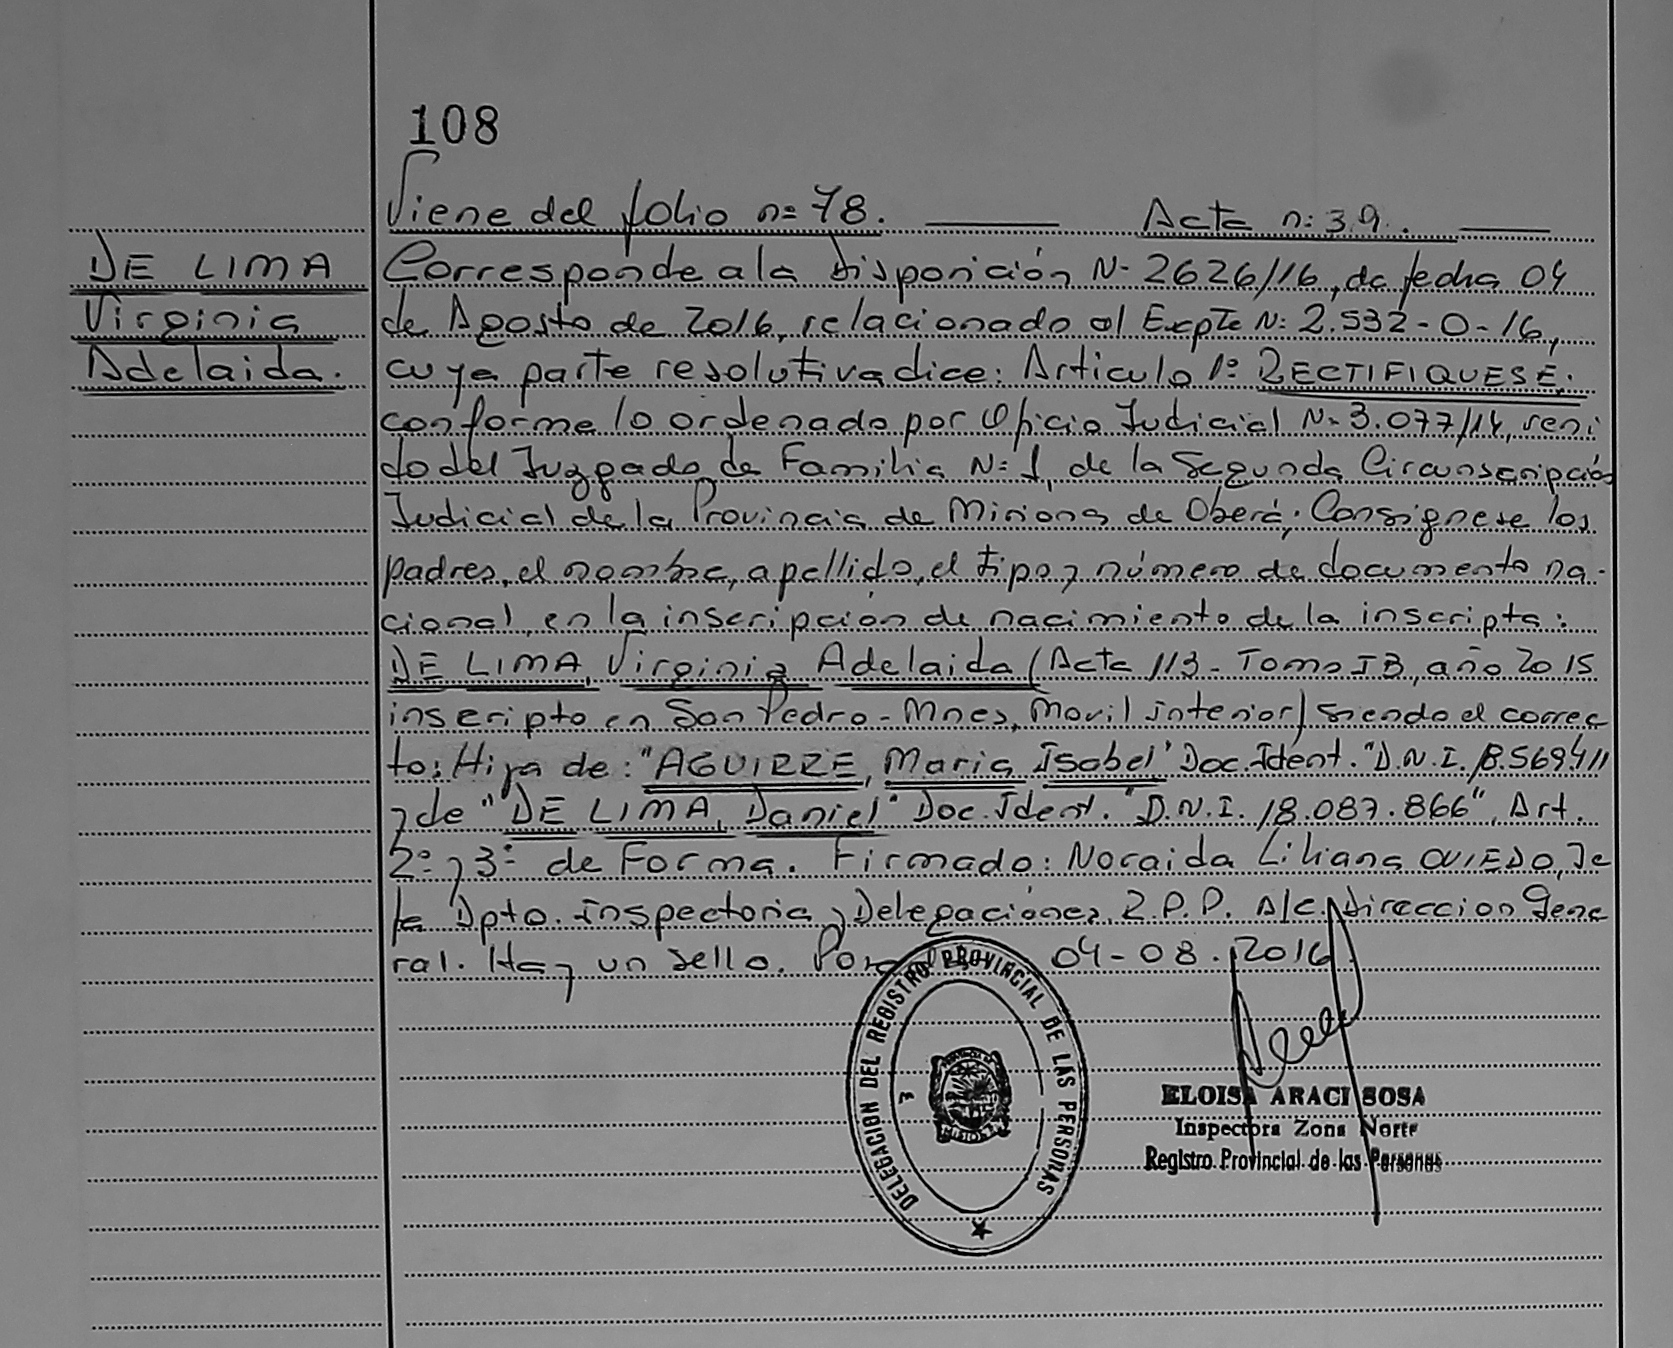 108
Viene del folio nº 78. Acta nº: 39.
DE LIMA
Virginia
Adelaida.
Corresponde a la Disposición Nº 2626/16, de fecha 04
de Agosto de 2016, relacionado al Expte Nº: 2.532-0-16,
cuya parte resolutiva dice: Articulo 1º RECTIFIQUESE:
conforme lo ordenado por Oficio Judicial Nº 3.077/14, reni
do del Juzgado de Familia Nº 1, de la Segunda Circunscripción
Judicial de la Provincia de Misiones de Oberá; Consignese los
padres, el nombre, apellido, el tipo y número de documento na-
cional, en la inscripción de nacimiento de la inscripta:
DE LIMA, Virginia Adelaida (Acta 113 - Tomo IB, año 2015
inscripto en San Pedro - Mnes, Movil interior) siendo el correc
to: Hija de: "AGUIRRE, Maria Isabel" Doc. Ident. "D.N.I.
y de "DE LIMA, Daniel" Doc. Ident. "D.N.I. 18.087.866", Art.
2º y 3º de Forma. Firmado: Noraida Liliana OVIEDO, Je
fe Dpto. Inspectoria y Delegaciones R.P.P. A/C. Direccion Gene
ral. Hay un sello. 04-08-2016.
DELEGACION DEL REGISTRO PROVINCIAL DE LAS PERSONAS
ELOISA ARACI SOSA
Inspectora Zona Norte
Registro Provincial de las Personas